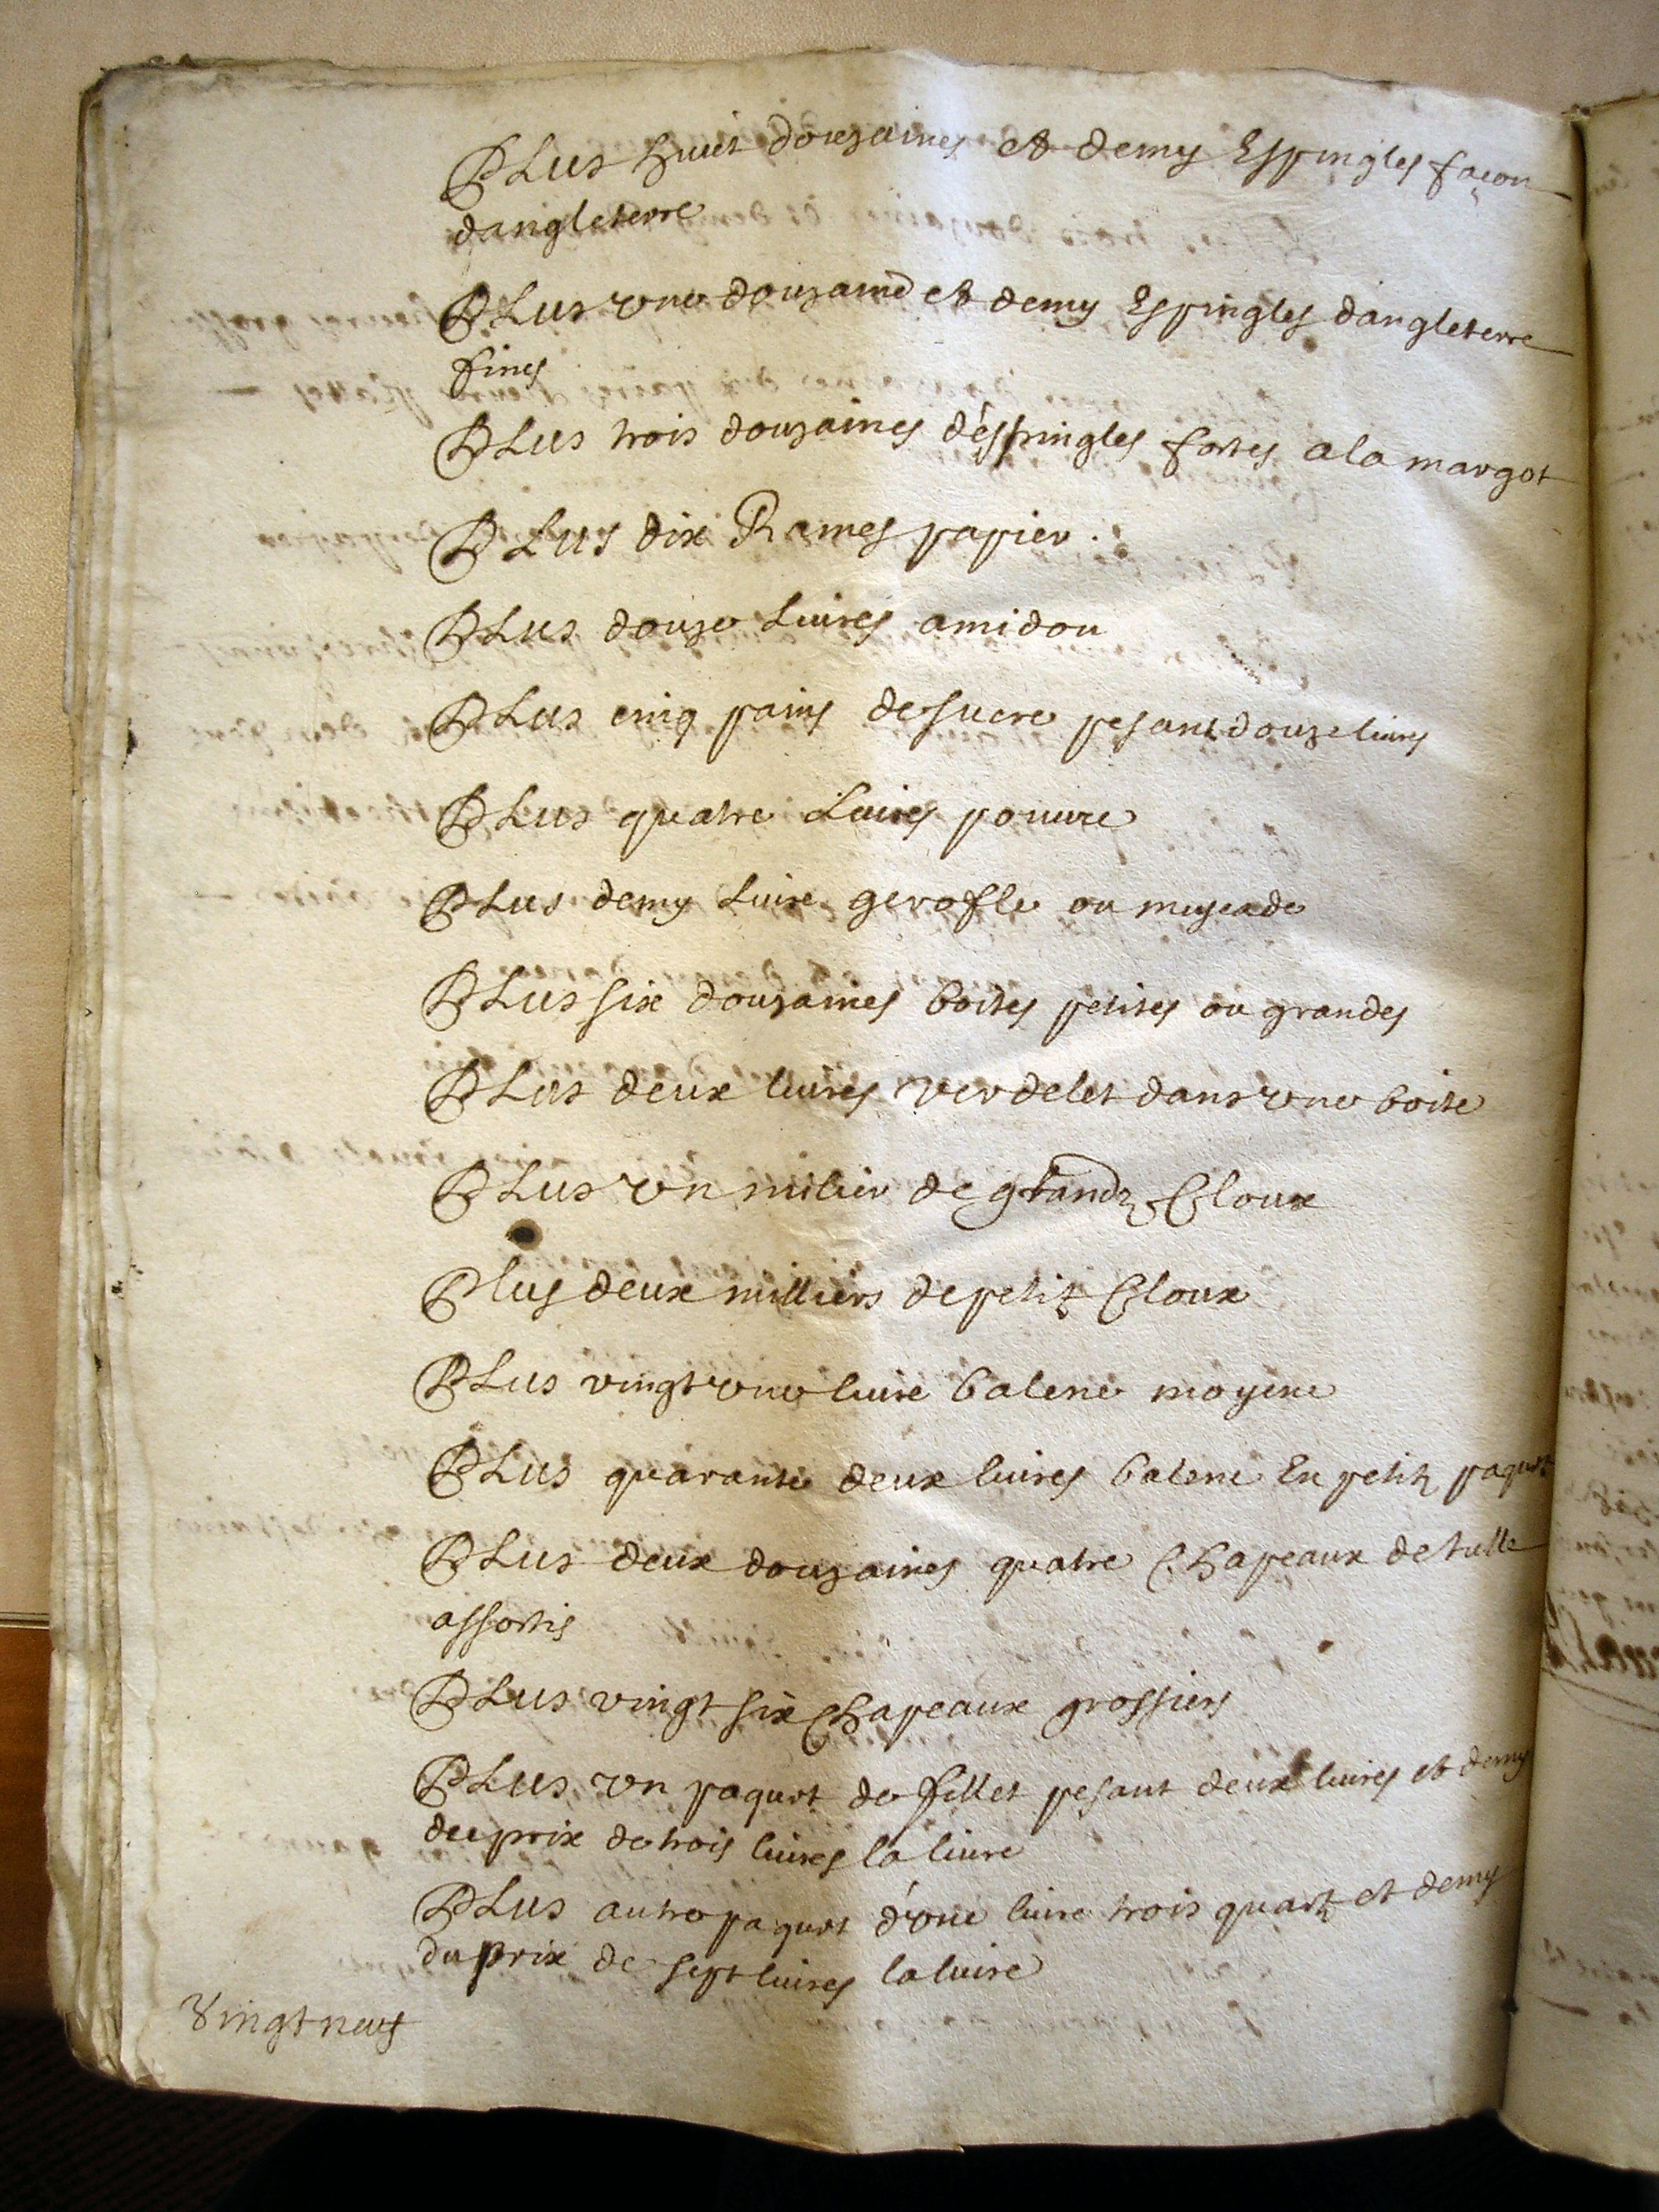 PLus huit douzaines et demy Espingles façon
dangleterre
PLus une douzaine et demy Espingles dangleterre
fines
PLus trois douzaines d'éspingles fortes a la margot
PLus dix Rames papier.
PLus douze Livres amidon
PLus cinq pains de sucre pesant douze livres
PLus quatre Livres pouvre
PLus demy Livre gerofle ou muscade
PLus six douzaines boites petites ou grandes
PLus deux livres verdelet dans une boite
PLus un milier de grandz Cloux
Plus deux milliers de petitz Cloux
PLus vingt une livre balene moyene
PLus quarante deux livres balene En petitz paquetz
PLus deux douzaines quatre Chapeaux de tulle
assortis
PLus vingt six Chapeaux grossiers
PLus un paquet de fillet pesant deux livres et demy
du prix de trois livres la livre
PLus autre paquet d'une livre trois quartz et demy
du prix de sept livres la livre
Vingt neuf